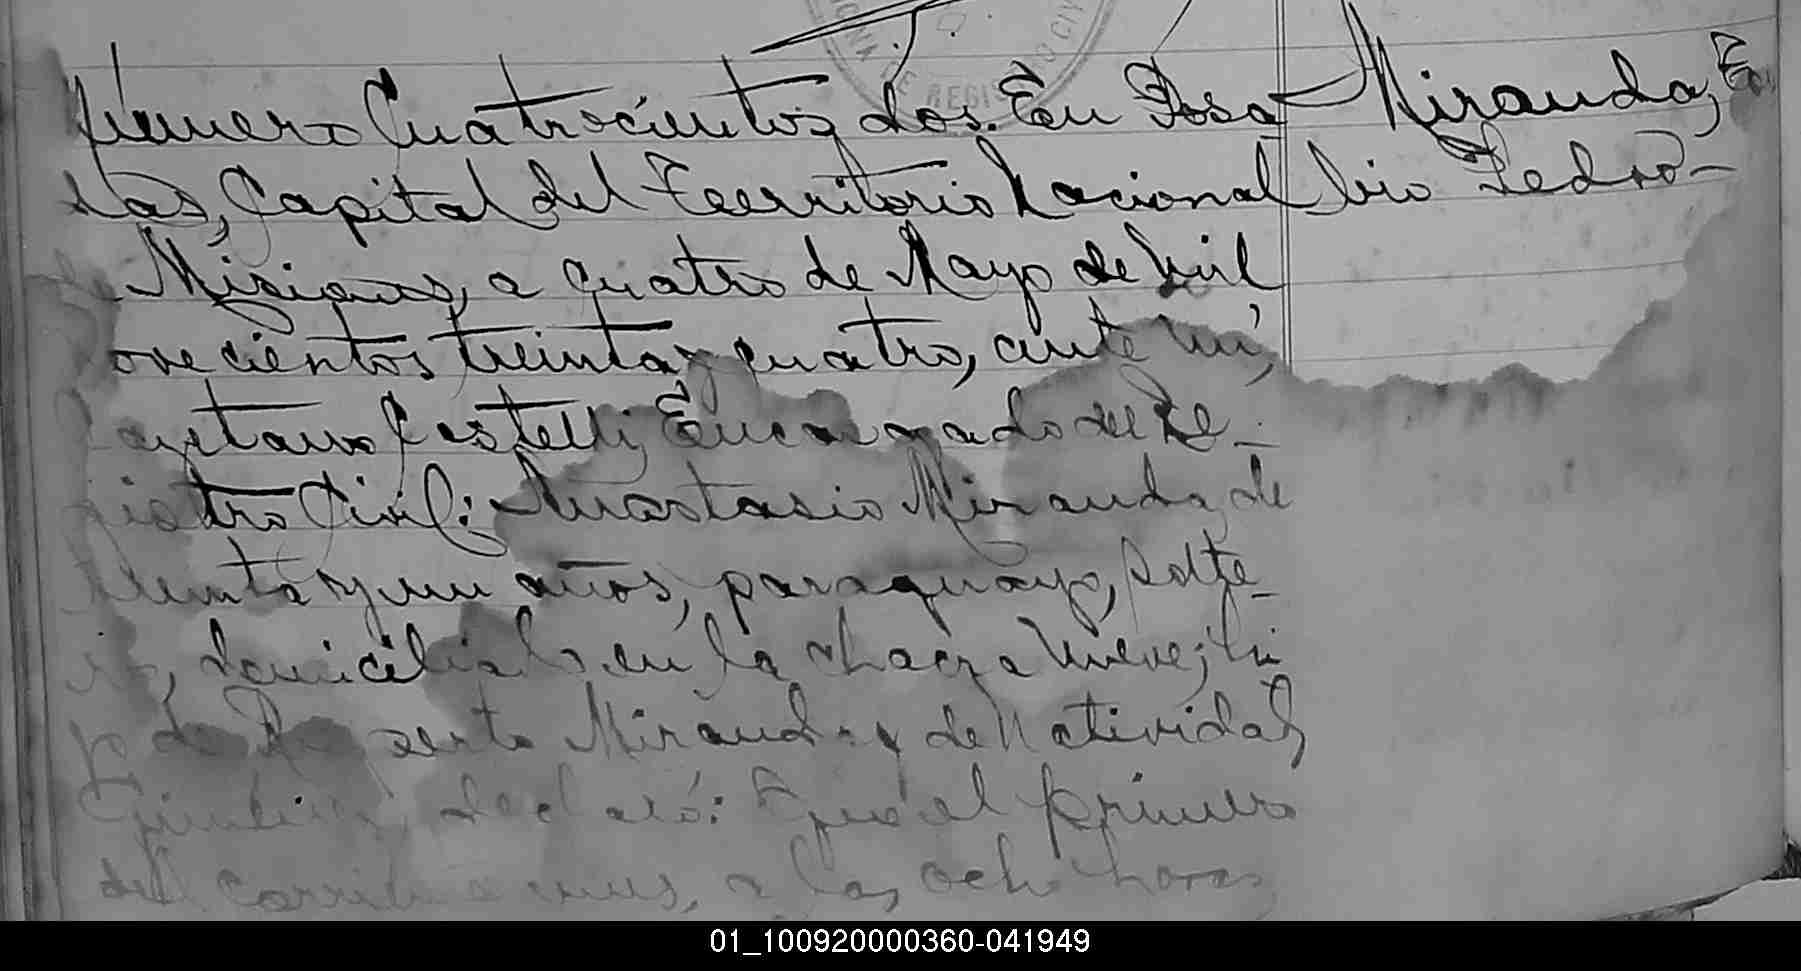 Número Cuatrocientos dos. En Posa
das, Capital del Territorio Nacional
de Misiones, a cuatro de Mayo de mil
novecientos treinta y cuatro, ante mí,
Cayetano Castelli, Encargado del Re-
gistro Civil: Anastasio Miranda, de
treinta y un años, paraguayo, solte-
ro, domiciliado en la chacra nueve; hi
jo de Miranda y de Natividad
declaró: Que el primero
del corriente mes, a las ocho horas
Miranda, Eu
bio Pedro-
DE REGIS CIV
01_100920000360-041949